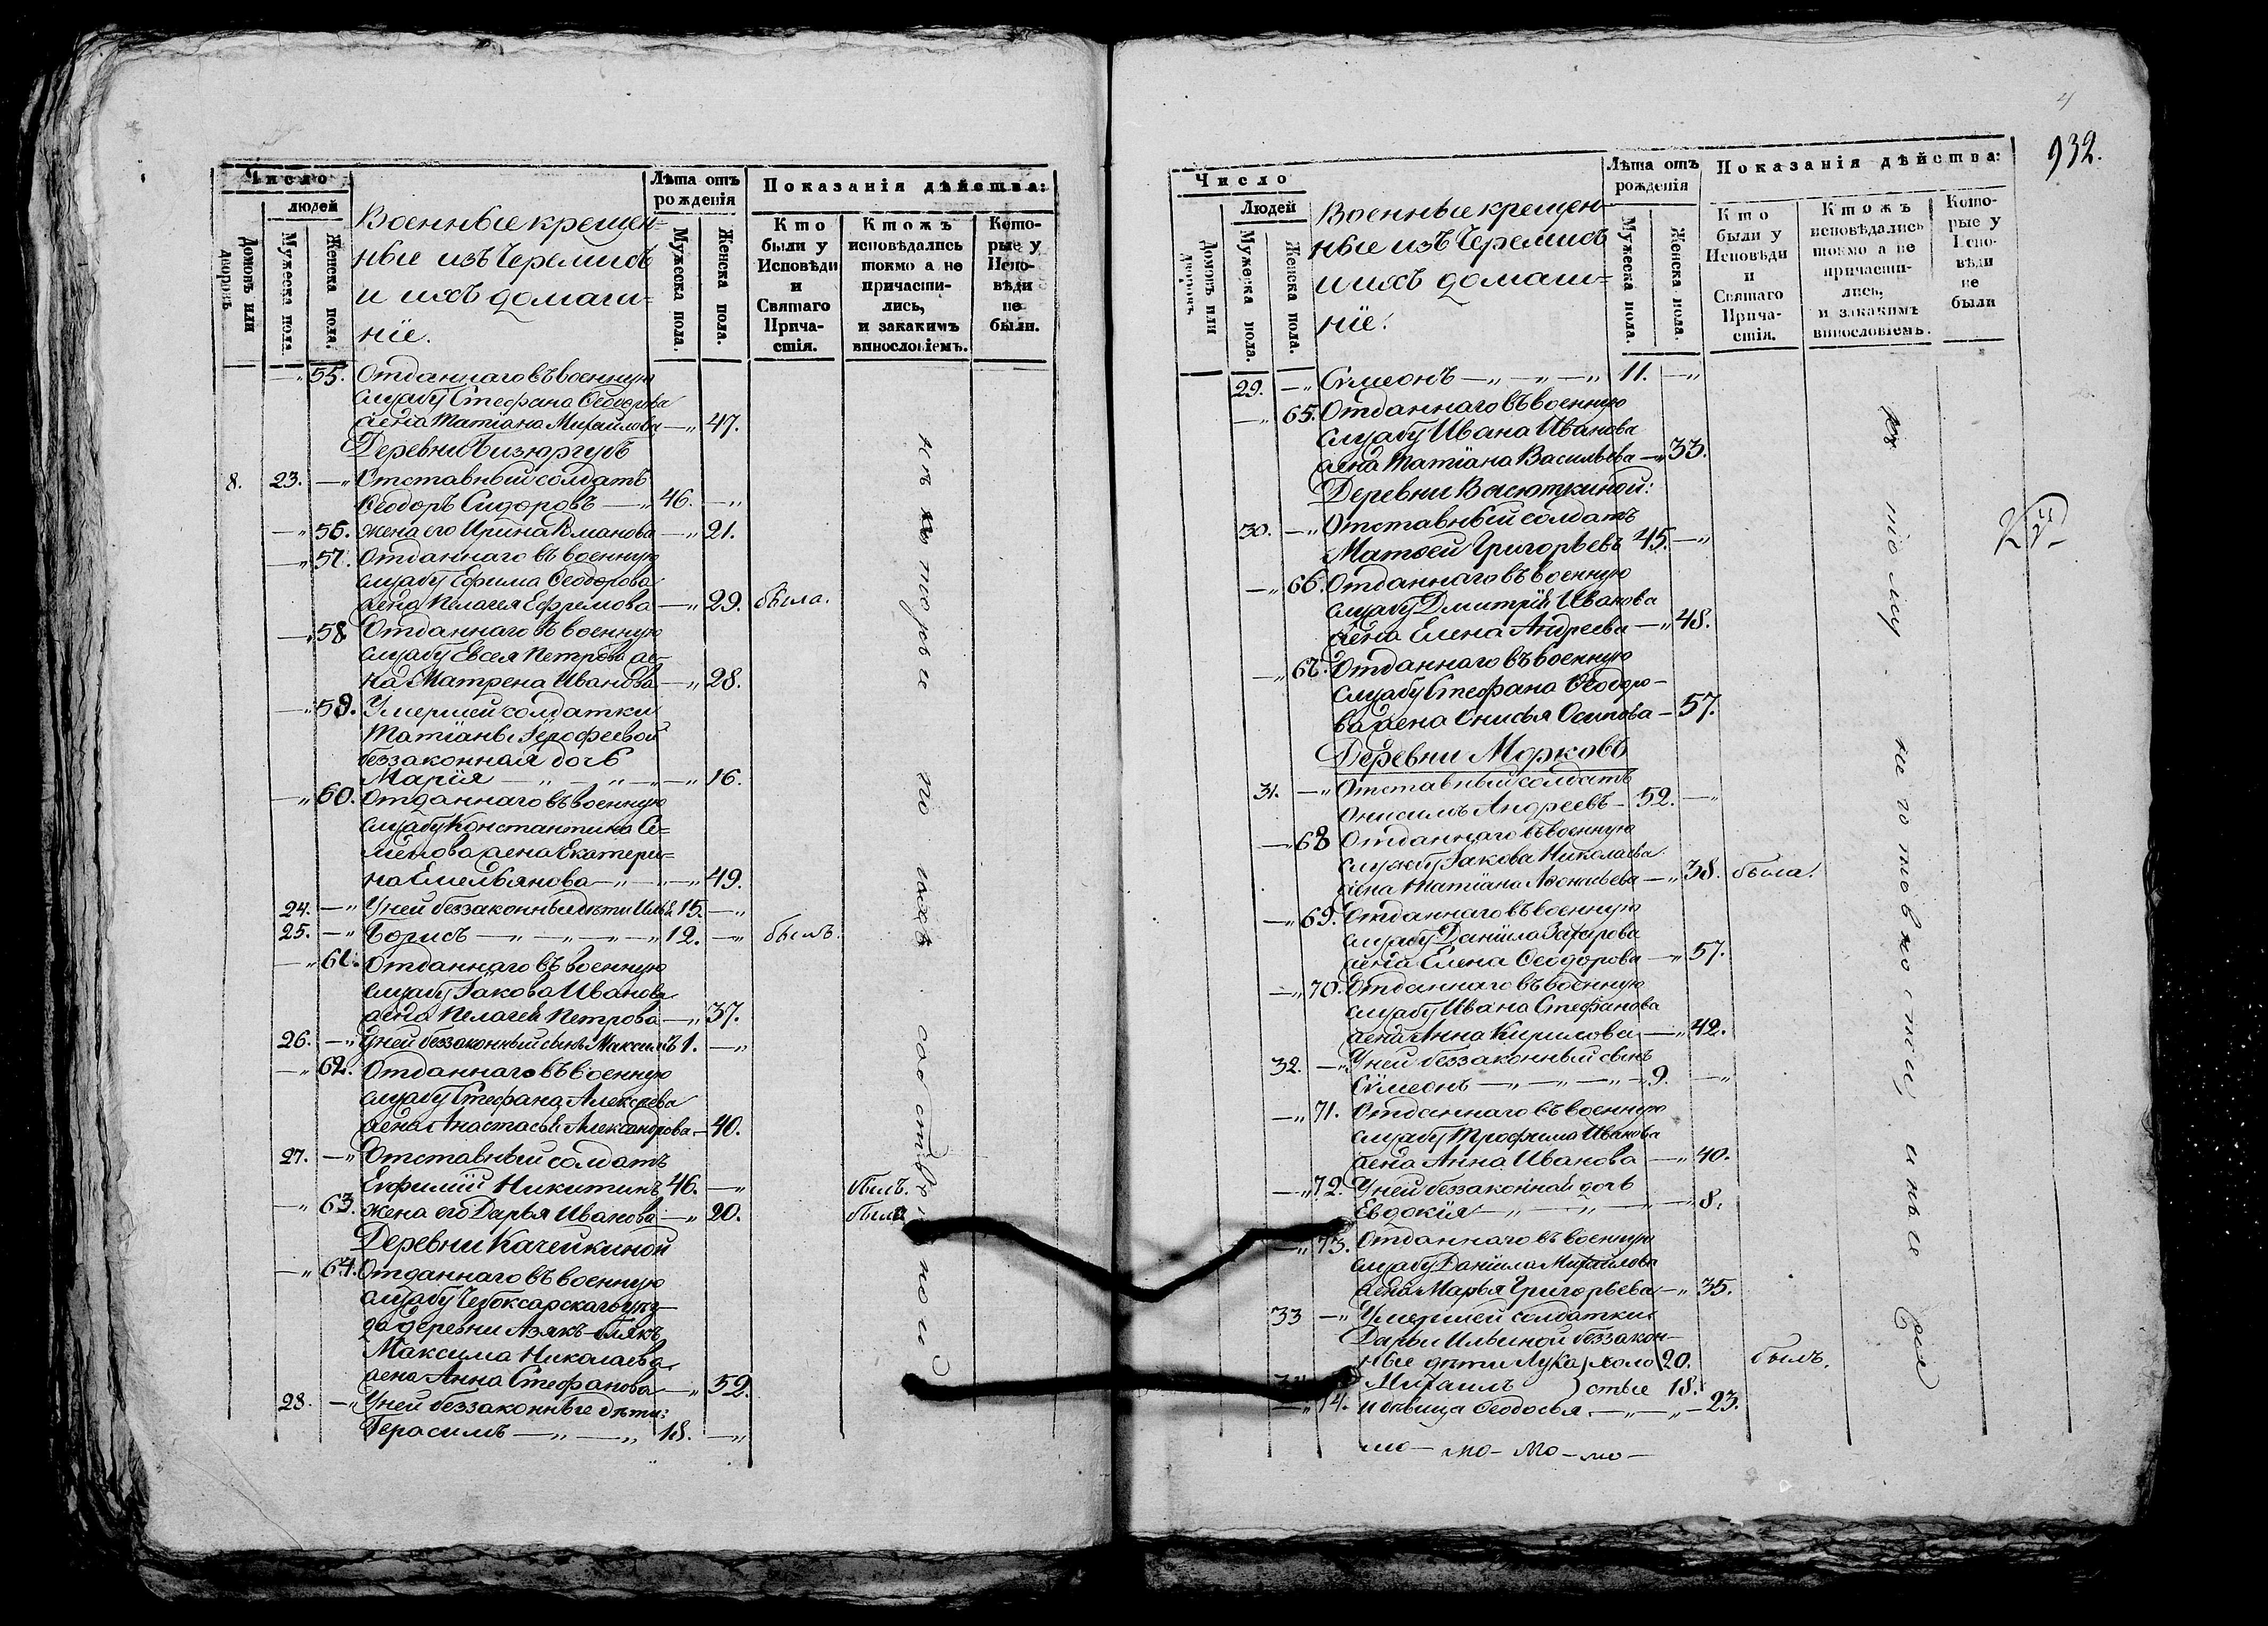 Число
людей
Домовъ или дворовъ
Мужеска пола.
Женска пола.
Военные крещен-
ные изъ Черемисъ
и ихъ домаш-
ніе.
Лѣта отъ рожденія
Мужеска пола.
Женска пола.
Показанія дѣйства:
Кто были у Исповѣди и Святаго Причастія.
Ктожъ исповѣдались токмо а не причастились, и закакимъ винословіемъ.
Которые у Исповѣди не были.
—„ 55. Отданнаго въ военную
службу Стефана Ѳеодорова
жена Татіана Михайлова —„ 47.
Деревни
8. 23. —„ Отставный солдатъ
Ѳеодоръ Сидоровъ —„ 46. —„
—„ 56. жена его Ирина Романова —„ 21.
—„ 57. Отданнаго въ военную
службу Ефима Ѳеодорова
жена Пелагея Ефремова —„ 29. была.
—„ 58 Отданнаго въ военную
службу Евсея Петрова же-
на Матрена Иванова —„ 28.
—„ 59. Умершей солдатки
Татіаны Ерофеевой
беззаконная дочь
Марія —„ —„ —„ 16.
—„ 60. Отданнаго въ военную
службу Константина Се-
менова жена Екатери-
на Емельянова —„ —„ 49.
24. —„ У ней беззаконные дѣти 15. —„
25. —„ Борисъ —„ —„ —„ 12. —„ былъ.
—„ 61. Отданнаго въ военную
службу Іакова Иванова
жена Пелагея Петрова —„ 37.
26. —„ У ней беззаконный сынъ Максимъ 1. —„
—„ 62. Отданнаго въ военную
службу Стефана Алексѣева
жена Анастасья Александрова — 40.
27. —„ Отставный солдатъ
Евфимій Никитинъ 46. —„ былъ.
—„ 63. жена его Дарья Иванова —„ 20. была
Деревни Качейкиной
—„ 64. Отданнаго въ военную
службу Чебоксарскаго уѣз-
да деревни Азякъ-
Максима Николаева
жена Анна Стефанова —„ 52.
28. —„ У ней беззаконные дѣти:
Герасимъ —„ —„ 18. —„
932.
Число
Людей
Домовъ или дворовъ.
Мужеска пола.
Женска пола.
Военные крещен-
ные изъ Черемисъ
и ихъ домаш-
ніе.
Лѣта отъ рожденія
Мужеска пола.
Женска пола.
Показанія дѣйства:
Кто были у Исповѣди и Святаго Причастія.
Ктожъ исповѣдались токмо а не причастились, и закакимъ винословіемъ.
Которые у Исповѣди не были
29. —„ Сѵмеонъ —„ —„ —„ 11. —„
—„ 65. Отданнаго въ военную
службу Ивана Иванова
жена Татіана Васильева —„ 33.
Деревни Васюткиной:
30. —„ Отставный солдатъ
Матѳей Григорьевъ 45. —„
—„ 66. Отданнаго въ военную
службу Дмитрія Иванова
жена Елена Андреева —„ 48.
—„ 67. Отданнаго въ военную
службу Стефана Ѳеодоро-
ва жена Осипова — 57.
Деревни Морковъ
31. —„ Отставный солдатъ
Онисимъ Андреевъ — 52. —„
—„ 68 Отданнаго въ военную
службу Іакова Николаева
жена Татіана —„ 38. была.
—„ 69. Отданнаго въ военную
службу Даніила Захарова
жена Елена Ѳеодорова —„ 57.
—„ 70. Отданнаго въ военную
службу Ивана Стефанова
жена Анна Кирилова —„ 42.
32. —„ У ней беззаконный сынъ
Сѵмеонъ —„ —„ —„ 9. —„
—„ 71. Отданнаго въ военную
службу Трофима Иванова
жена Анна Иванова —„ 40.
—„ 72. У ней беззаконная дочь
Евдокія —„ —„ —„ 8.
—„ 73. Отданнаго въ военную
службу Даніила Михайлова
жена Марья Григорьева —„ 35.
33 —„ Умершей солдатки
Дарьи Ильиной беззакон-
ные дѣти Лука холо 20. былъ.
Михаилъ стые 18.
—„ 74. и дѣвица Ѳеодосья —„ —„ 23.